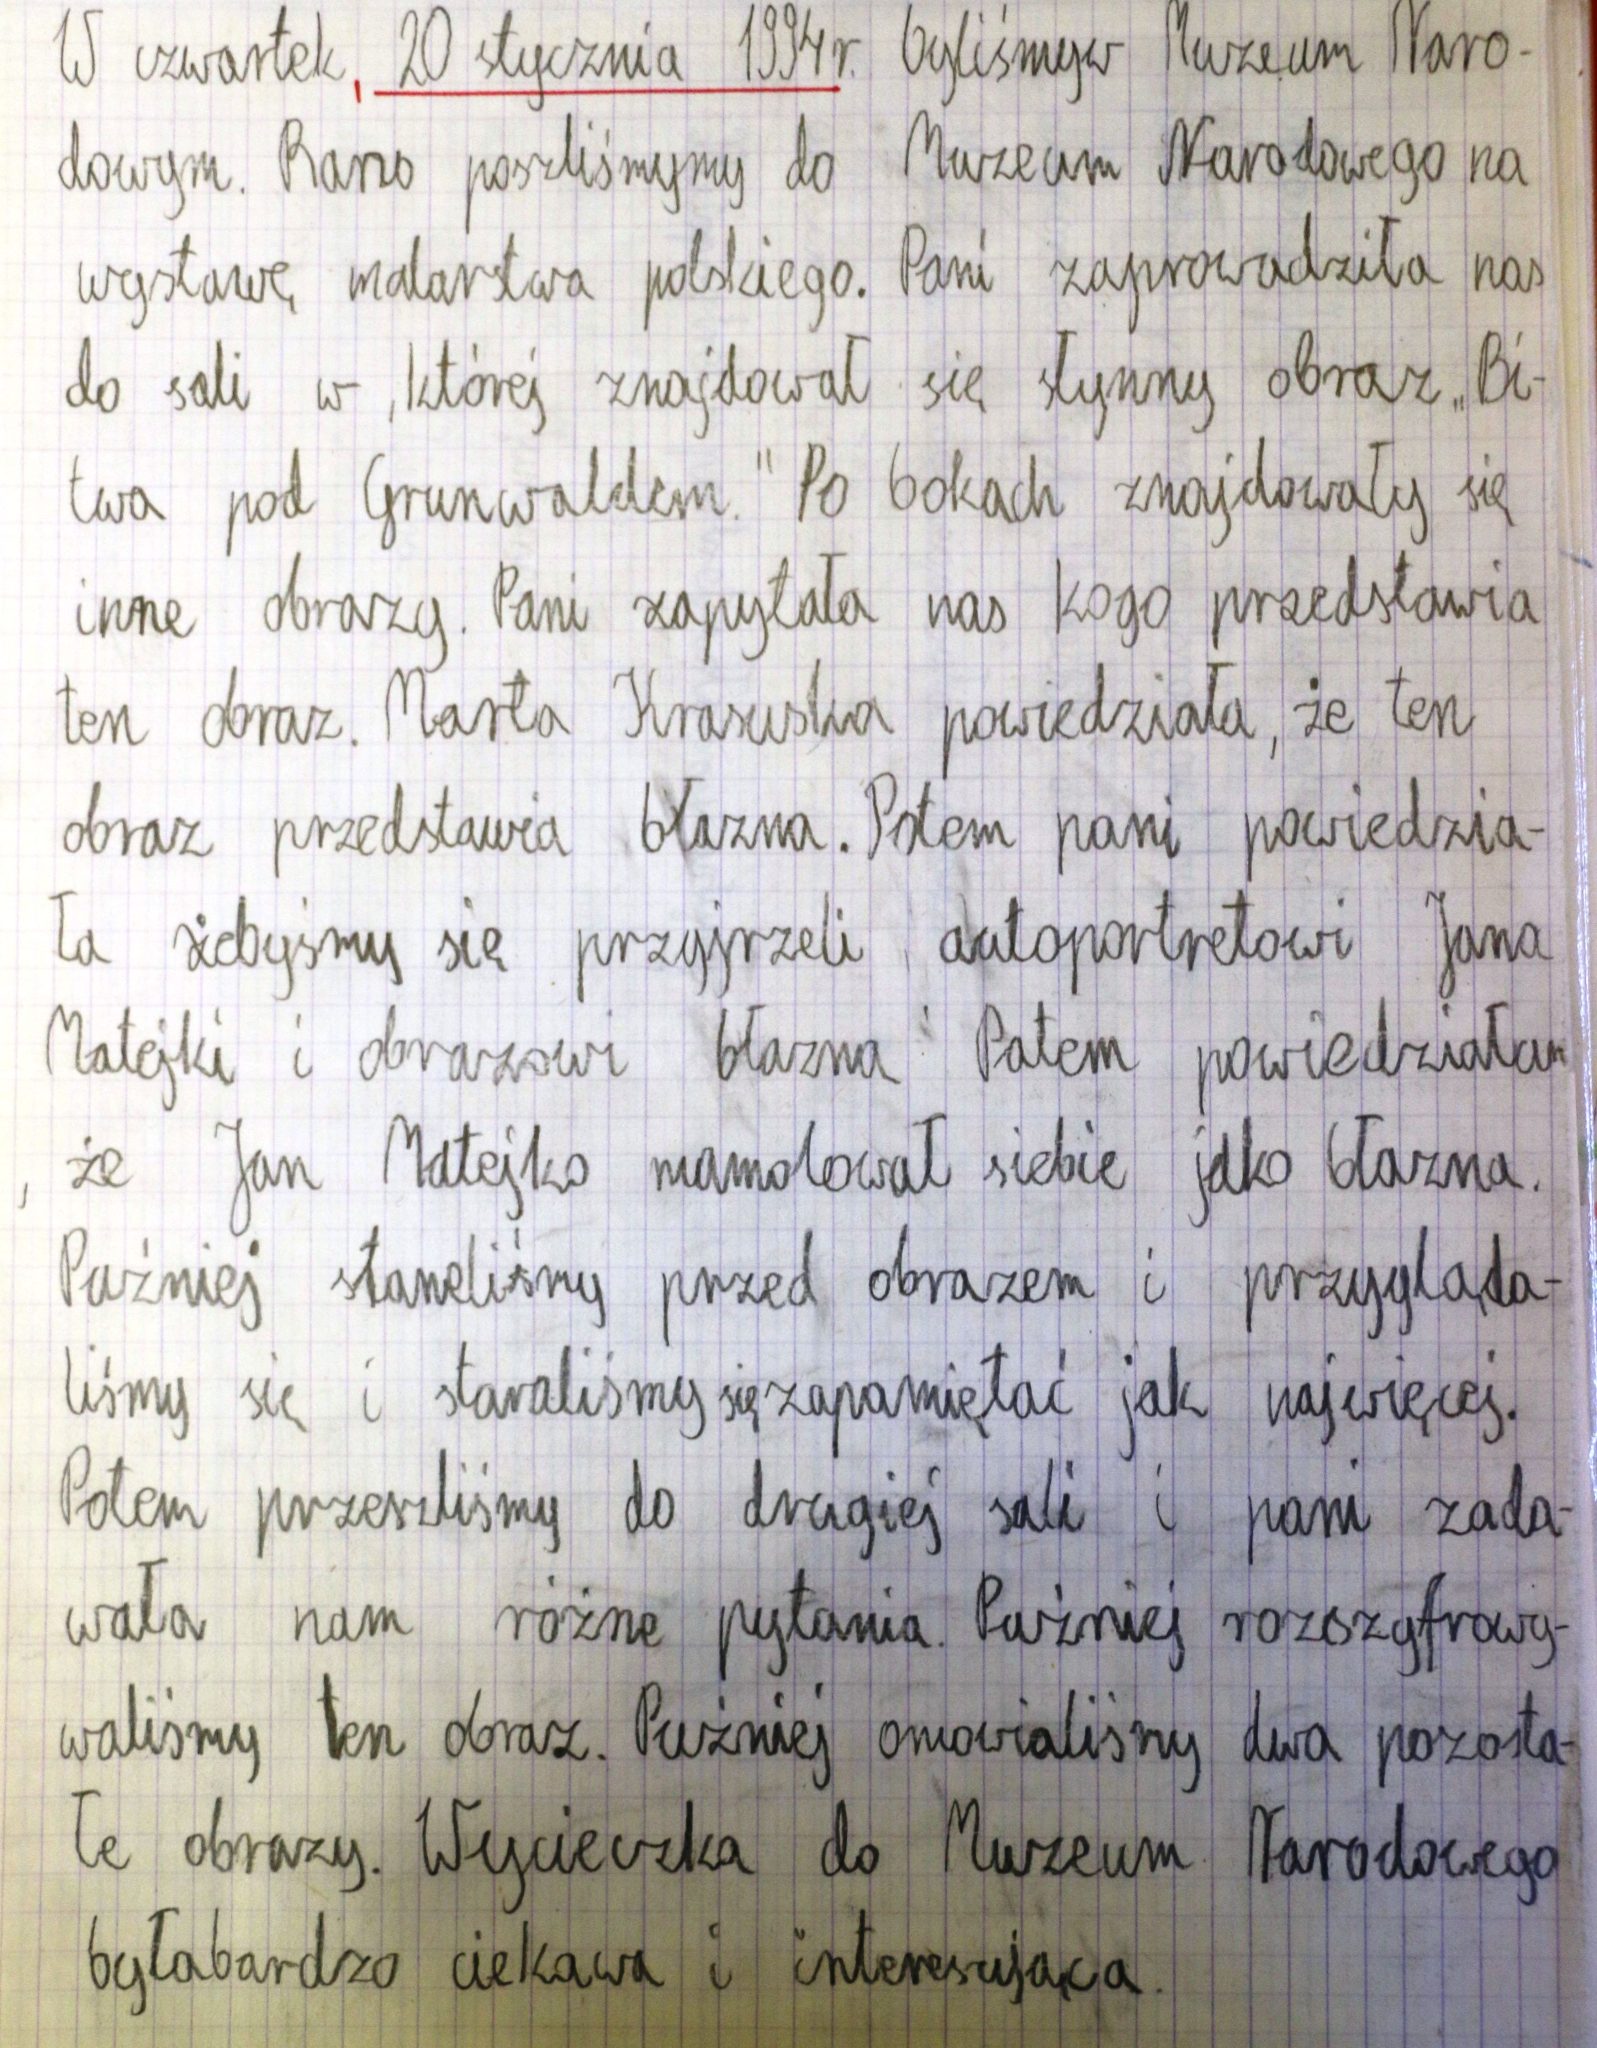 W czwartek, 20 stycznia 1994r. byliśmyw Muzeum Naro-
dowym. Rano poszliśmymy do Muzeum Narodowego na
wystawę malarstwa polskiego. Pani zaprowadziła nas
do sali w ,której znajdował się słynny obraz „Bi-
twa pod Grunwaldem." Po bokach znajdowały się
inne obrazy. Pani zapytała nas kogo przedstawia
ten obraz. Marta Krasuska powiedziała, że ten
obraz przedstawia błazna. Potem pani powiedzia-
ła żebyśmy się przyjrzeli autoportretowi Jana
Matejki i obrazowi błazna. Potem powiedziałam
, że Jan Matejko mamolował siebie jako błazna.
Puźniej staneliśmy przed obrazem i przygląda-
liśmy się i staraliśmy się zapamiętać jak najwięcej.
Potem przeszliśmy do drugiej sali i pani zada-
wała nam różne pytania. Puźniej rozszyfrowy-
waliśmy ten obraz. Puźniej omowialiśmy dwa pozosta-
łe obrazy. Wycieczka do Muzeum Narodowego
byłabardzo ciekawa i interesująca.